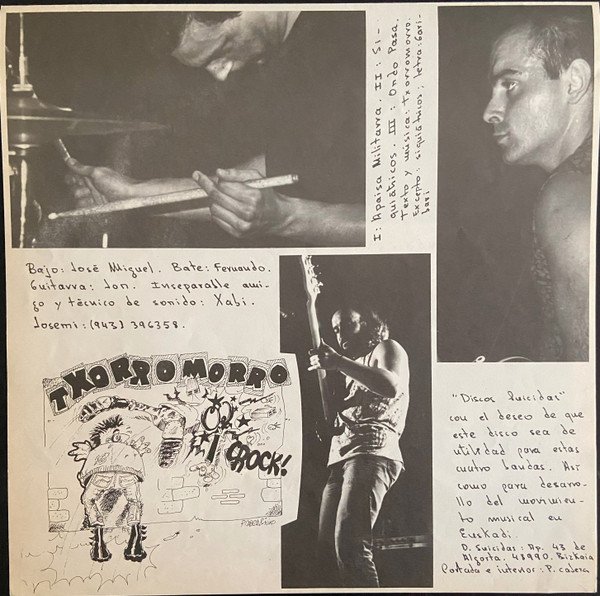 I: Apaisa Militarra. II: Si-
quiátricos. III: Ondo Pasa.
Texto y música: Txorromorro.
Excepto: siquiátricos; letra: Gari-
bari
Bajo: José Miguel. Bate: Fernando.
Guitarra: Jon. Inseparable ami-
go y técnico de sonido: Xabi.
Josemi: (943) 396358.
TXORROMORRO
ROCK!
"Discos Suicidas"
con el deseo de que
este disco sea de
utilidad para estas
cuatro bandas. Así
como para desarro-
llo del movimien-
to musical en
Euskadi.
D. Suicidas: Ap. 43 de
Algorta. 43990. Bizkaia
Portada e interior: P. cabera